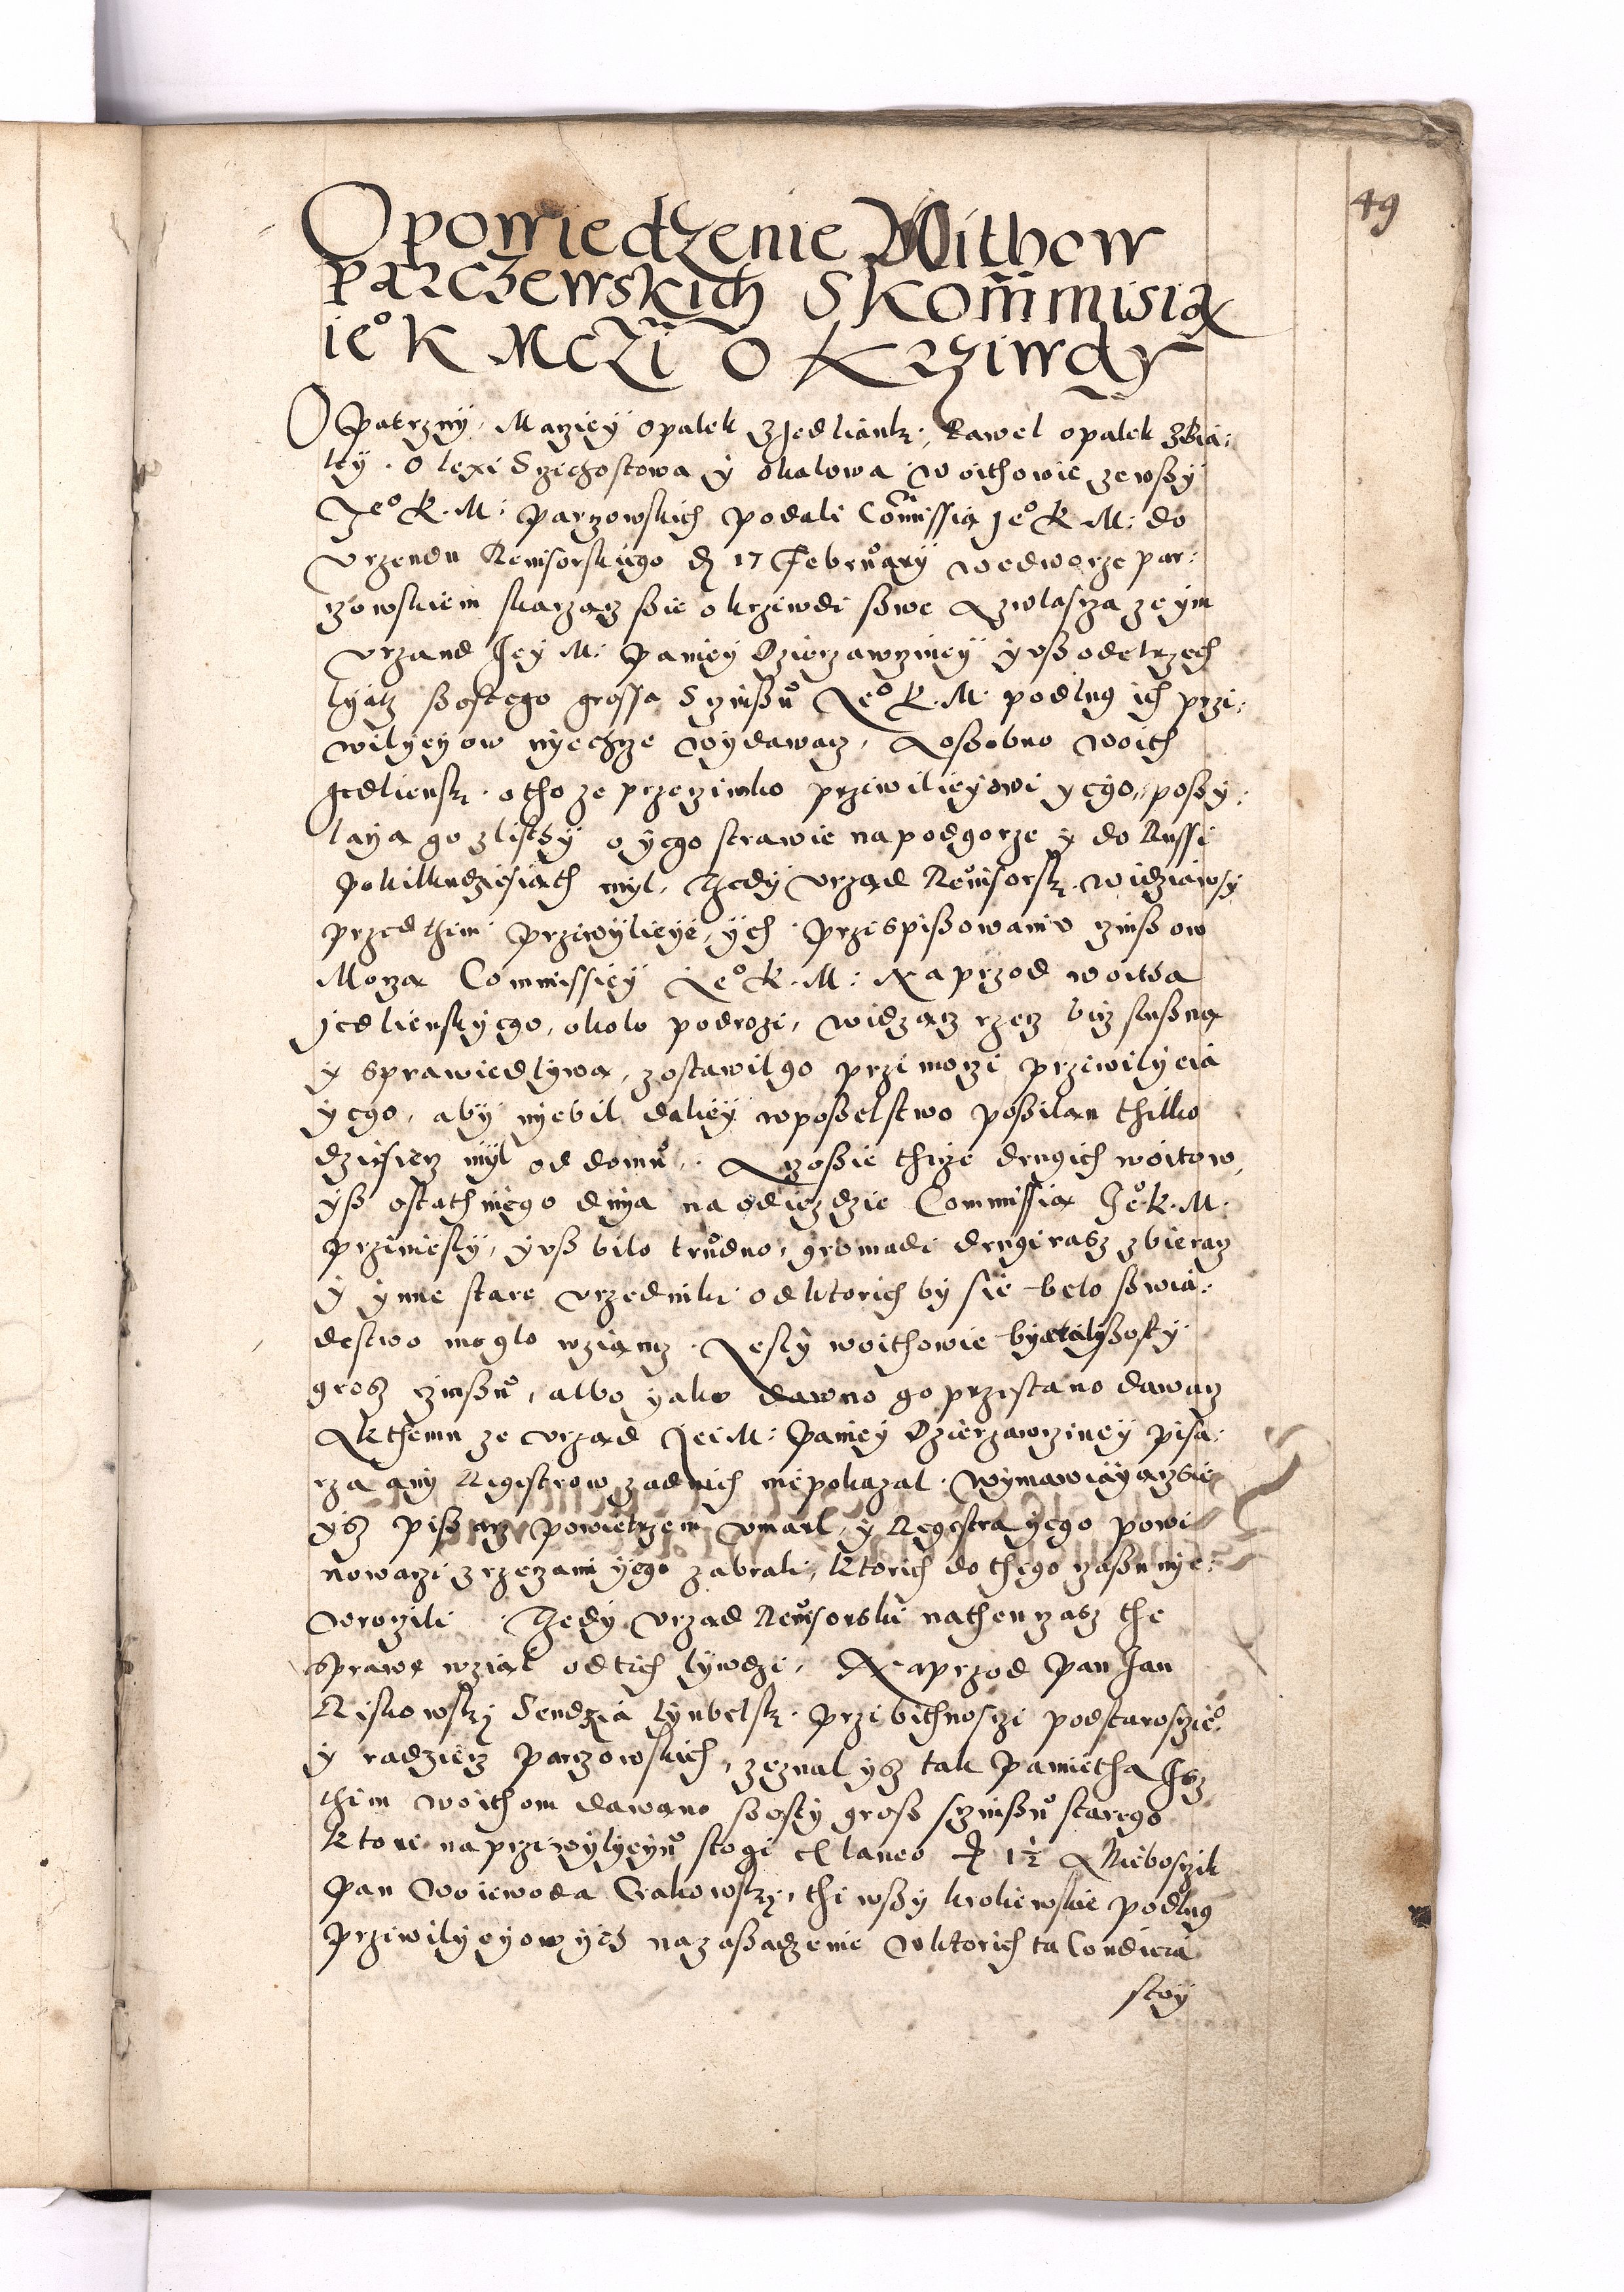 49
Opowiedzenie Withow
Parczewskich S Kommisią
ieo K Mczi O Krziwdy
Opatrzny Maciey opalek z Jedlianki, Pawel opalek z Bia:
ley. Olexi S zichostowa y okalowa woithowie ze wsży
Jeo K. M: parzowskich podali Comissią Jeo K M: do
vrzendu Rewisorskiego d 17 February wedworze par:
czowskiem skarzącz szie o krziwdi szwe A zwlascza ze ym
vrzand Jey M: Paniey Dzierzawczyney yusz ode trzech
lyatz szostego grossa S czinszu Jeo K. M. podlug ich przi:
wilyeyow nyechcze wydawacz, A oszobno woith
Jedliensk. o tho ze przeciwko przewilieyowi yego, poszy:
laya go z listhy o yego strawie na podgorze y do Russi
po kilkudziesiath myl, Thedy vrząd Rewisorsk. widziawsy
przed thim przewylieye, ych przi spiszowaniu czinszow
Mocza Commissiey Jeo K. M: Naprzod woitha
Jedlienskyego, okolo podrozi, widzącz rzecz bycz slusną
y sprawiedlywą, zostawil go przi moczi przewilyeia
yego, aby nyebil daliey w poszelstwo poszilan thilko
dziesiecz myl od domu. A czo szie thicze drugich woitow,
ysz ostathniego dnya na odiezdzie Commissią Jeo K. M.
przyniesly, yusz bilo trudno, gromadi drugi rasz zbieracz
y ynne stare vrzedniki od ktorich by sie belo szwia:
destwo moglo wziącz. Jesly woithowie byrali szosty
grosz czinszu, albo yako dawno go przestano dawacz
A kthemu ze vrząd Jei M: Paniey Dzierzawczyney pisa:
rza any Rigistrow zadnich nie pokazal. wymawiayączsie
ysz piszarz powietrzem vmarl, y Registra yego powi
nowaczi z rzeczami yego zabrali, ktorich do thego czaszu nye:
wroczili. Thedy vrząd Rewisorski na then czasz the
sprawę wziąl od tich lyudzi, Naprzod Pan Jan
Riskowsky Sendzia lyubelsk. przi bithnosczi podstarosczieo
y radziecz parczowskich, zeznal ysz tak pamietha Jsz
thim woithom dawano szosty grosz sczinszu starego
ktori na przewylyeyu stogi el laneo 1½ A Nieboszczik
Pan Woiewoda Crakowsky, thi wszy krolewskie podlug
przewilyeyow yich na zaszadzenie w ktorich ta Condicia
stoy